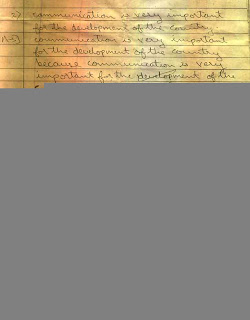 5) communication is very important
for the development of the country
A-5) communication is very important
for the development of the country
because communication is very
important for the development of the